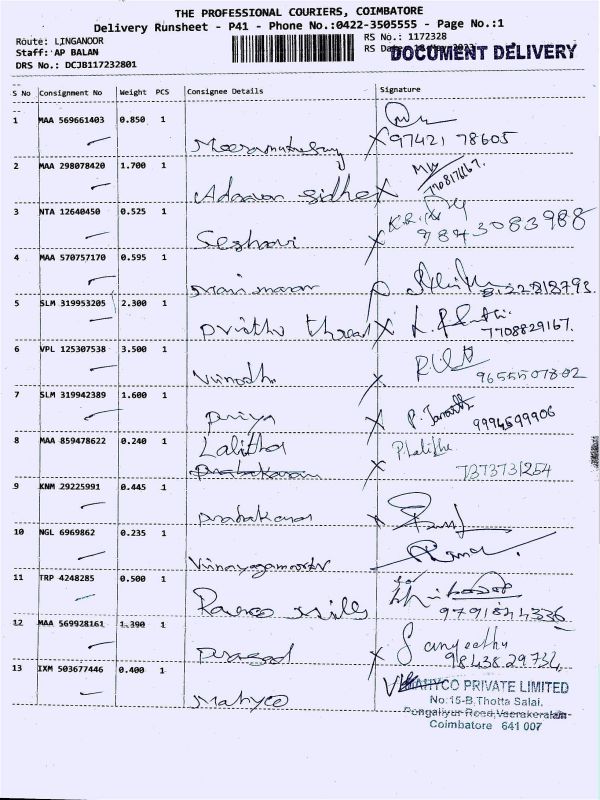 THE PROFESSIONAL COURIERS, COIMBATORE
Delivery Runsheet - P41 - Phone No.:0422-3505555 - Page No.:1
Route: LINGANOOR
Staff: AP BALAN
DRS No.: DCJB117232801
RS No.: 1172328
RS Date
DOCUMENT DELIVERY
S No Consignment No Weight PCS Consignee Details Signature
1 MAA 569661403 0.850 1
97421 78605
2 MAA 298078420 1.700 1
3 NTA 12640450 0.525 1 Seshavi
9843083988
4 MAA 570757170 0.595 1 Manimaran
5 SLM 319953205 2.300 1 Prithvi thread
7708829167.
6 VPL 125307538 3.500 1 Vinodh
9655507802
7 SLM 319942389 1.600 1 Priya
P. Janarth
9994599906
8 MAA 859478622 0.240 1 Lalitha
Prabakaran
P. Lalitha
7373731254
9 KNM 29225991 0.445 1 Prabakaran
10 NGL 6969862 0.235 1 Vinayagamoorthy
11 TRP 4248285 0.500 1 Mills
9791844336
12 MAA 569928161 1.390 1 Prasad
Sangeetha
98438 29734
13 IXM 503677446 0.400 1 Mahyco
MAHYCO PRIVATE LIMITED
No:15-B, Thotta Salai,
Pongaliyur Road, Veerakeralam
Coimbatore 641 007